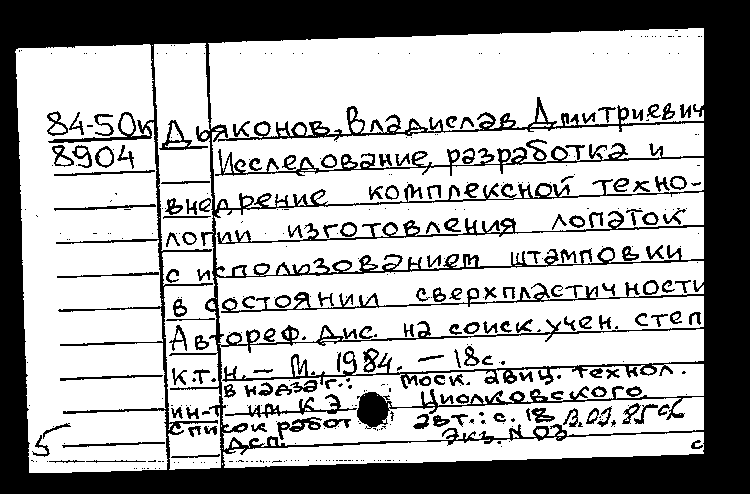 84-50к Дьяконов, Владислав Дмитриевич
8904 Исследование, разработка и
внедрение комплексной техно-
логии изготовления лопаток
с использованием штамповки
в состоянии сверхпластичности
Автореф. дис. на соиск. учен. степ
к.т.н. – М., 1984. – 18с.
В надзаг.: Моск. авиц. технол.
ин-т им. К Э Циолковского.
Список работ авт.: с. 18
Дсп. Экз. N 03
5
с